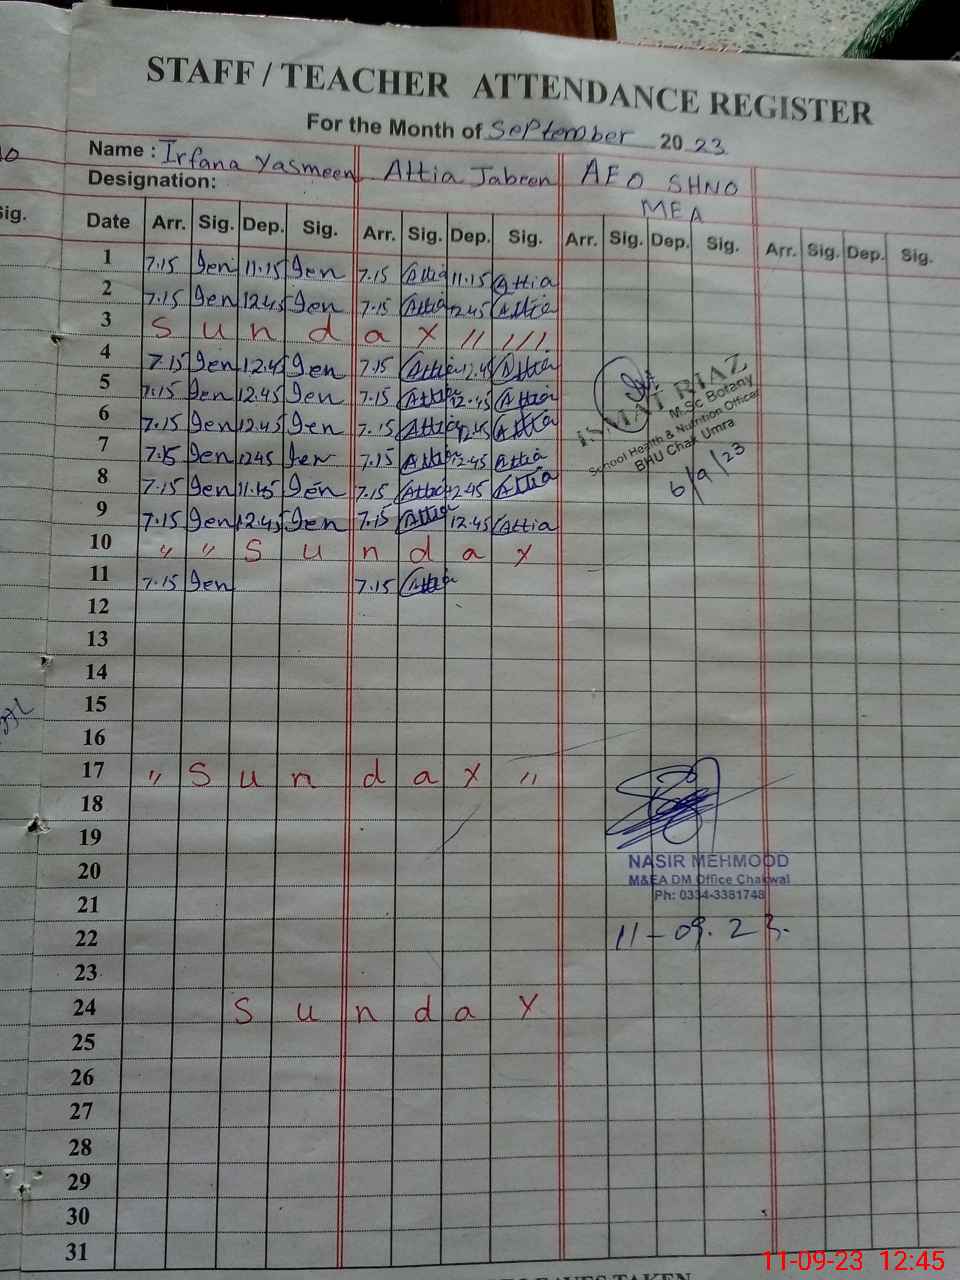 STAFF / TEACHER ATTENDANCE REGISTER
For the Month of September 2023
Name : Irfana Yasmeen Attia Jabeen AEO SHNO
MEA
Designation:
Sig.
Date Arr. Sig. Dep. Sig. Arr. Sig. Dep. Sig. Arr. Sig. Dep. Sig. Arr. Sig. Dep. Sig.
1 7.15 Jen 11.15 Jen 7.15 Attia 11.15 Attia
2 7.15 Jen 12.45 Jen 7.15 Attia 12.45 Attia
3 S u n d a y // // /.
4 7.15 Jen 12.45 Jen 7.15 Attia 12.45 Attia
5 7.15 Jen 12.45 Jen 7.15 Attia 12.45 Attia
6 7.15 Jen 12.45 Jen 7.15 Attia 12.45 Attia
7 7.15 Jen 1245 Jen 7.15 Attia 12.45 Attia
8 7.15 Jen Jen 7.15 Attia 12.45 Attia
9 7.15 Jen 12.45 Jen 7.15 Attia 12.45 Attia
10 " " S u n d a y
11 7.15 Jen 7.15 Attia
12
13
14
15
16
17 " S u n d a y "
18
19
20
21
22
23
24 S u n d a y
25
26
27
28
29
30
31
RIAZ
M.SC Botany
School Health & Nutrition Officer
BHU Chak Umra
6/9/23
NASIR MEHMOOD
M&EA DM Office Chakwal
Ph: 0334-3381748
11-09.23.
11-09-23 12:45